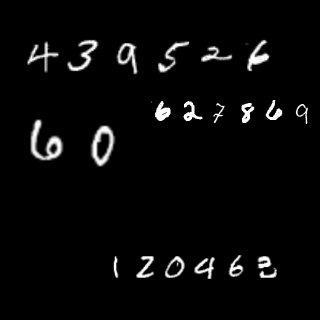 439526
627869
60
120463